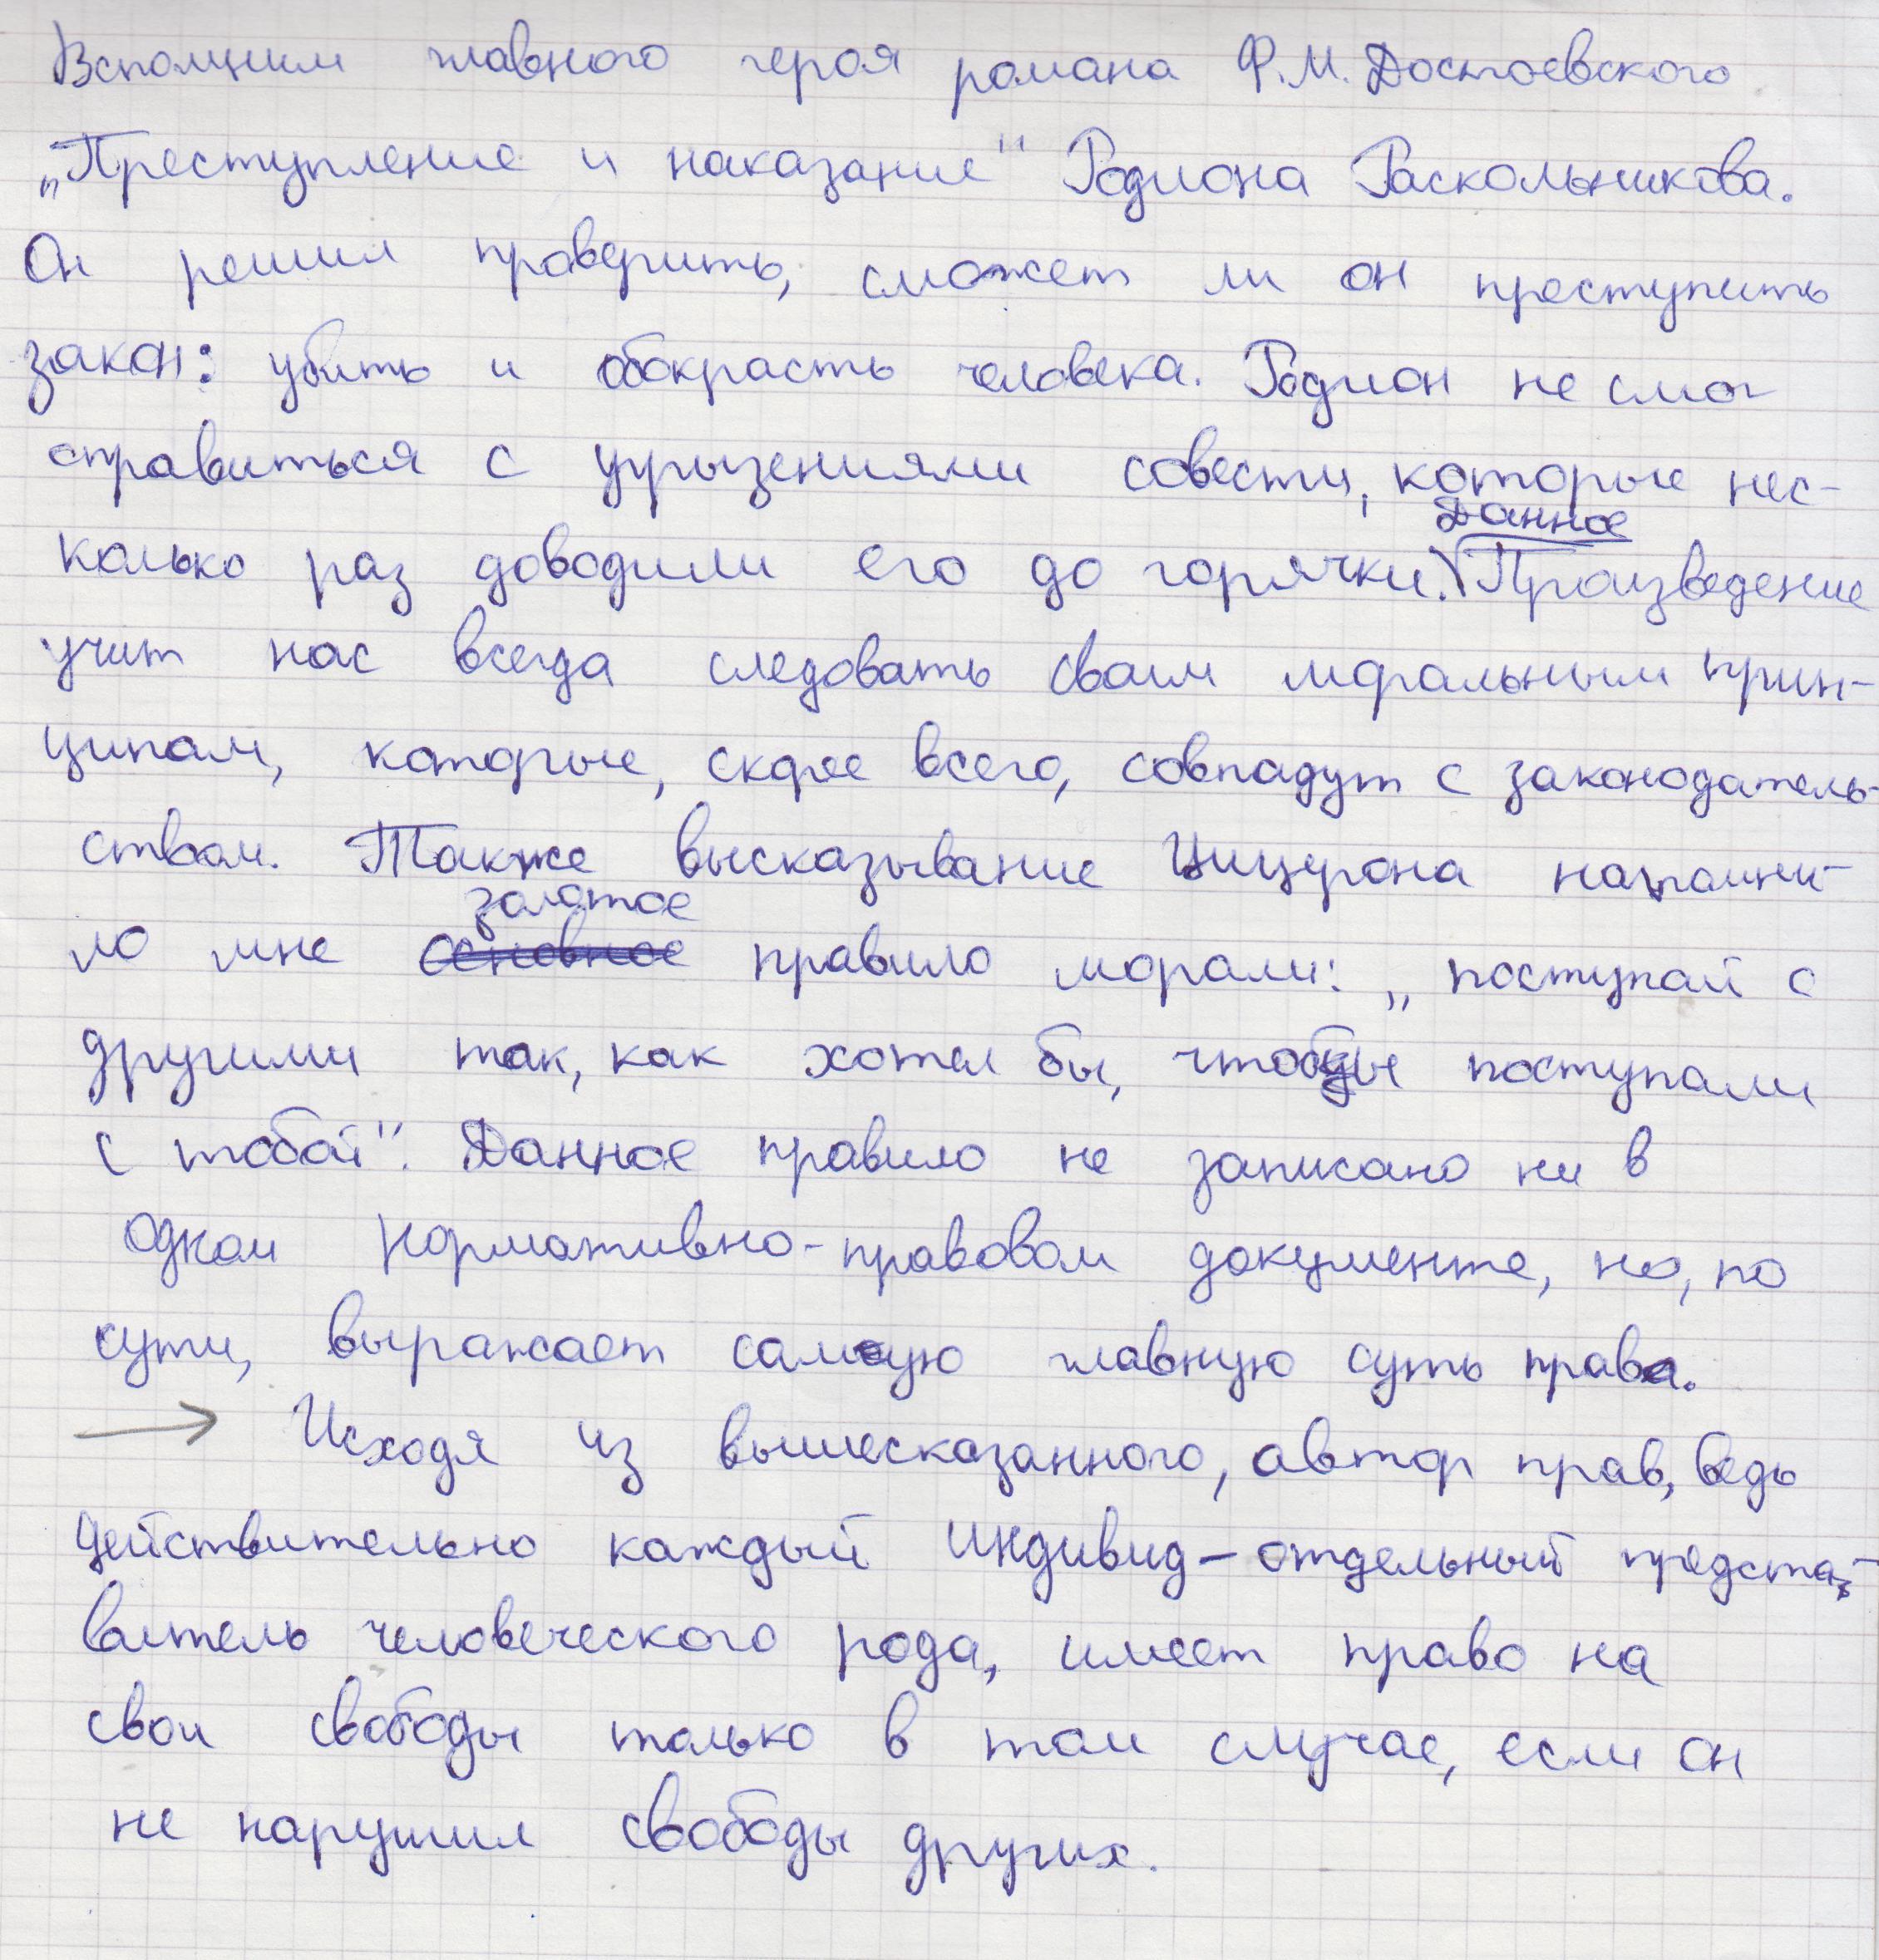 Вспомним главного героя романа Ф.М. Достоевского
„Преступление и наказание" Родиона Раскольникова.
Он решил проверить, сможет ли он преступить
закон: убить и обокрасть человека. Родион не смог
справиться с угрызениями совести, которые нес-
Данное
колько раз доводили его до горячки. Произведение
учит нас всегда следовать своим моральным прин-
ципам, которые, скорее всего, совпадут с законодатель-
ством. Также высказывание Цицерона напомни-
золотое
ло мне основное правило морали: „поступай с
другими так, как хотел бы, чтобы поступали
с тобой". Данное правило не записано ни в
одном нормативно-правовом документе, но, по
сути, выражает самую главную суть права.
→ Исходя из вышесказанного, автор прав, ведь
действительно каждый индивид - отдельный предста-
витель человеческого рода, имеет право на
свои свободы только в том случае, если он
не нарушил свободы других.